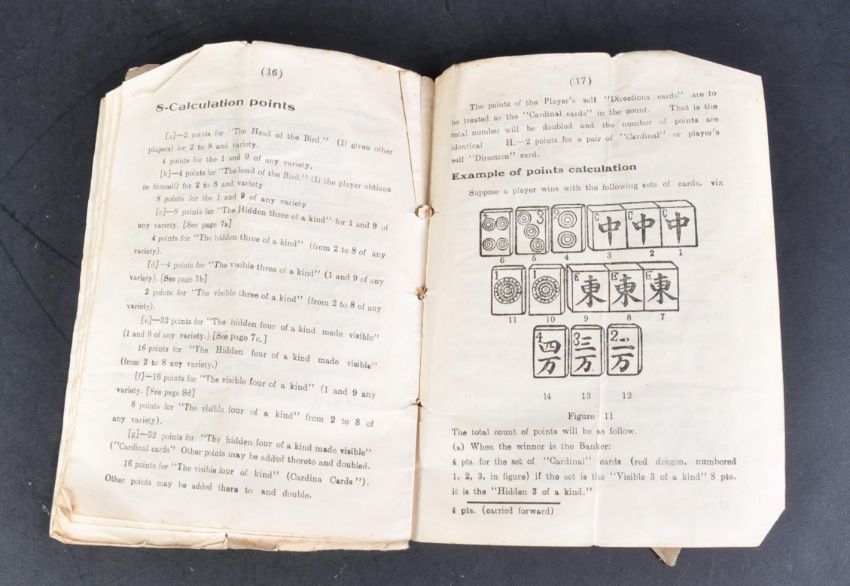 (16)
8-Calculation points
[a]—2 points for "The Head of the Bird." (If given other
players) for 2 to 8 and variety.
4 points for the 1 and 9 of any variety.
[b]—4 points for "The head of the Bird." (If the player obtians
in himself) for 2 to 8 and variety
8 points for the 1 and 9 of any variety
[c]—8 points for "The Hidden three of a kind" for 1 and 9 of
any variety. [See page 7a]
4 points for "The hidden three of a kind" (from 2 to 8 of any
variety).
[d]—4 points for "The visible three of a kind" (1 and 9 of any
variety). [See page 7b]
2 points for "The visible three of a kind" (from 2 to 8 of any
variety).
[e]—32 points for "The hidden four of a kind made visible"
(1 and 9 of any variety.) [See page 7c.]
16 points for "The Hidden four of a kind made visible"
(from 2 to 8 any variety.)
[f]—16 points for "The visible four of a kind" (1 and 9 any
variety. [See page 8d]
8 points for "The visible four of a kind" from 2 to 8 of
any variety).
[g]—32 points for "The hidden four of a kind made visible"
("Cardinal cards" Other points may be added thereto and doubled.
16 points for "The visible four of kind" (Cardina Cards").
Other points may be added there to and double.
(17)
The points of the Player's self "Directions cards" are to
be treated as the "Cardinal cards" in the count. That is the
total number will be doubled and the number of points are
identical H.—2 points for a pair of "Cardinal" or player's
self "Direction" card.
Example of points calculation
Suppose a player wins with the following sets of cards, viz
3 2 C中 C中 C中
6 5 4 3 2 1
1 1 E東 E東 E東
11 10 9 8 7
4四万 3三万 2二万
14 13 12
Figure 11
The total count of points will be as follow.
(a) When the winner is the Banker:
4 pts. for the set of "Cardinal" cards (red dragon, numbered
1, 2, 3, in figure) if the set is the "Visible 3 of a kind" 8 pts.
it is the "Hidden 3 of a kind."
4 pts. (carried forward)